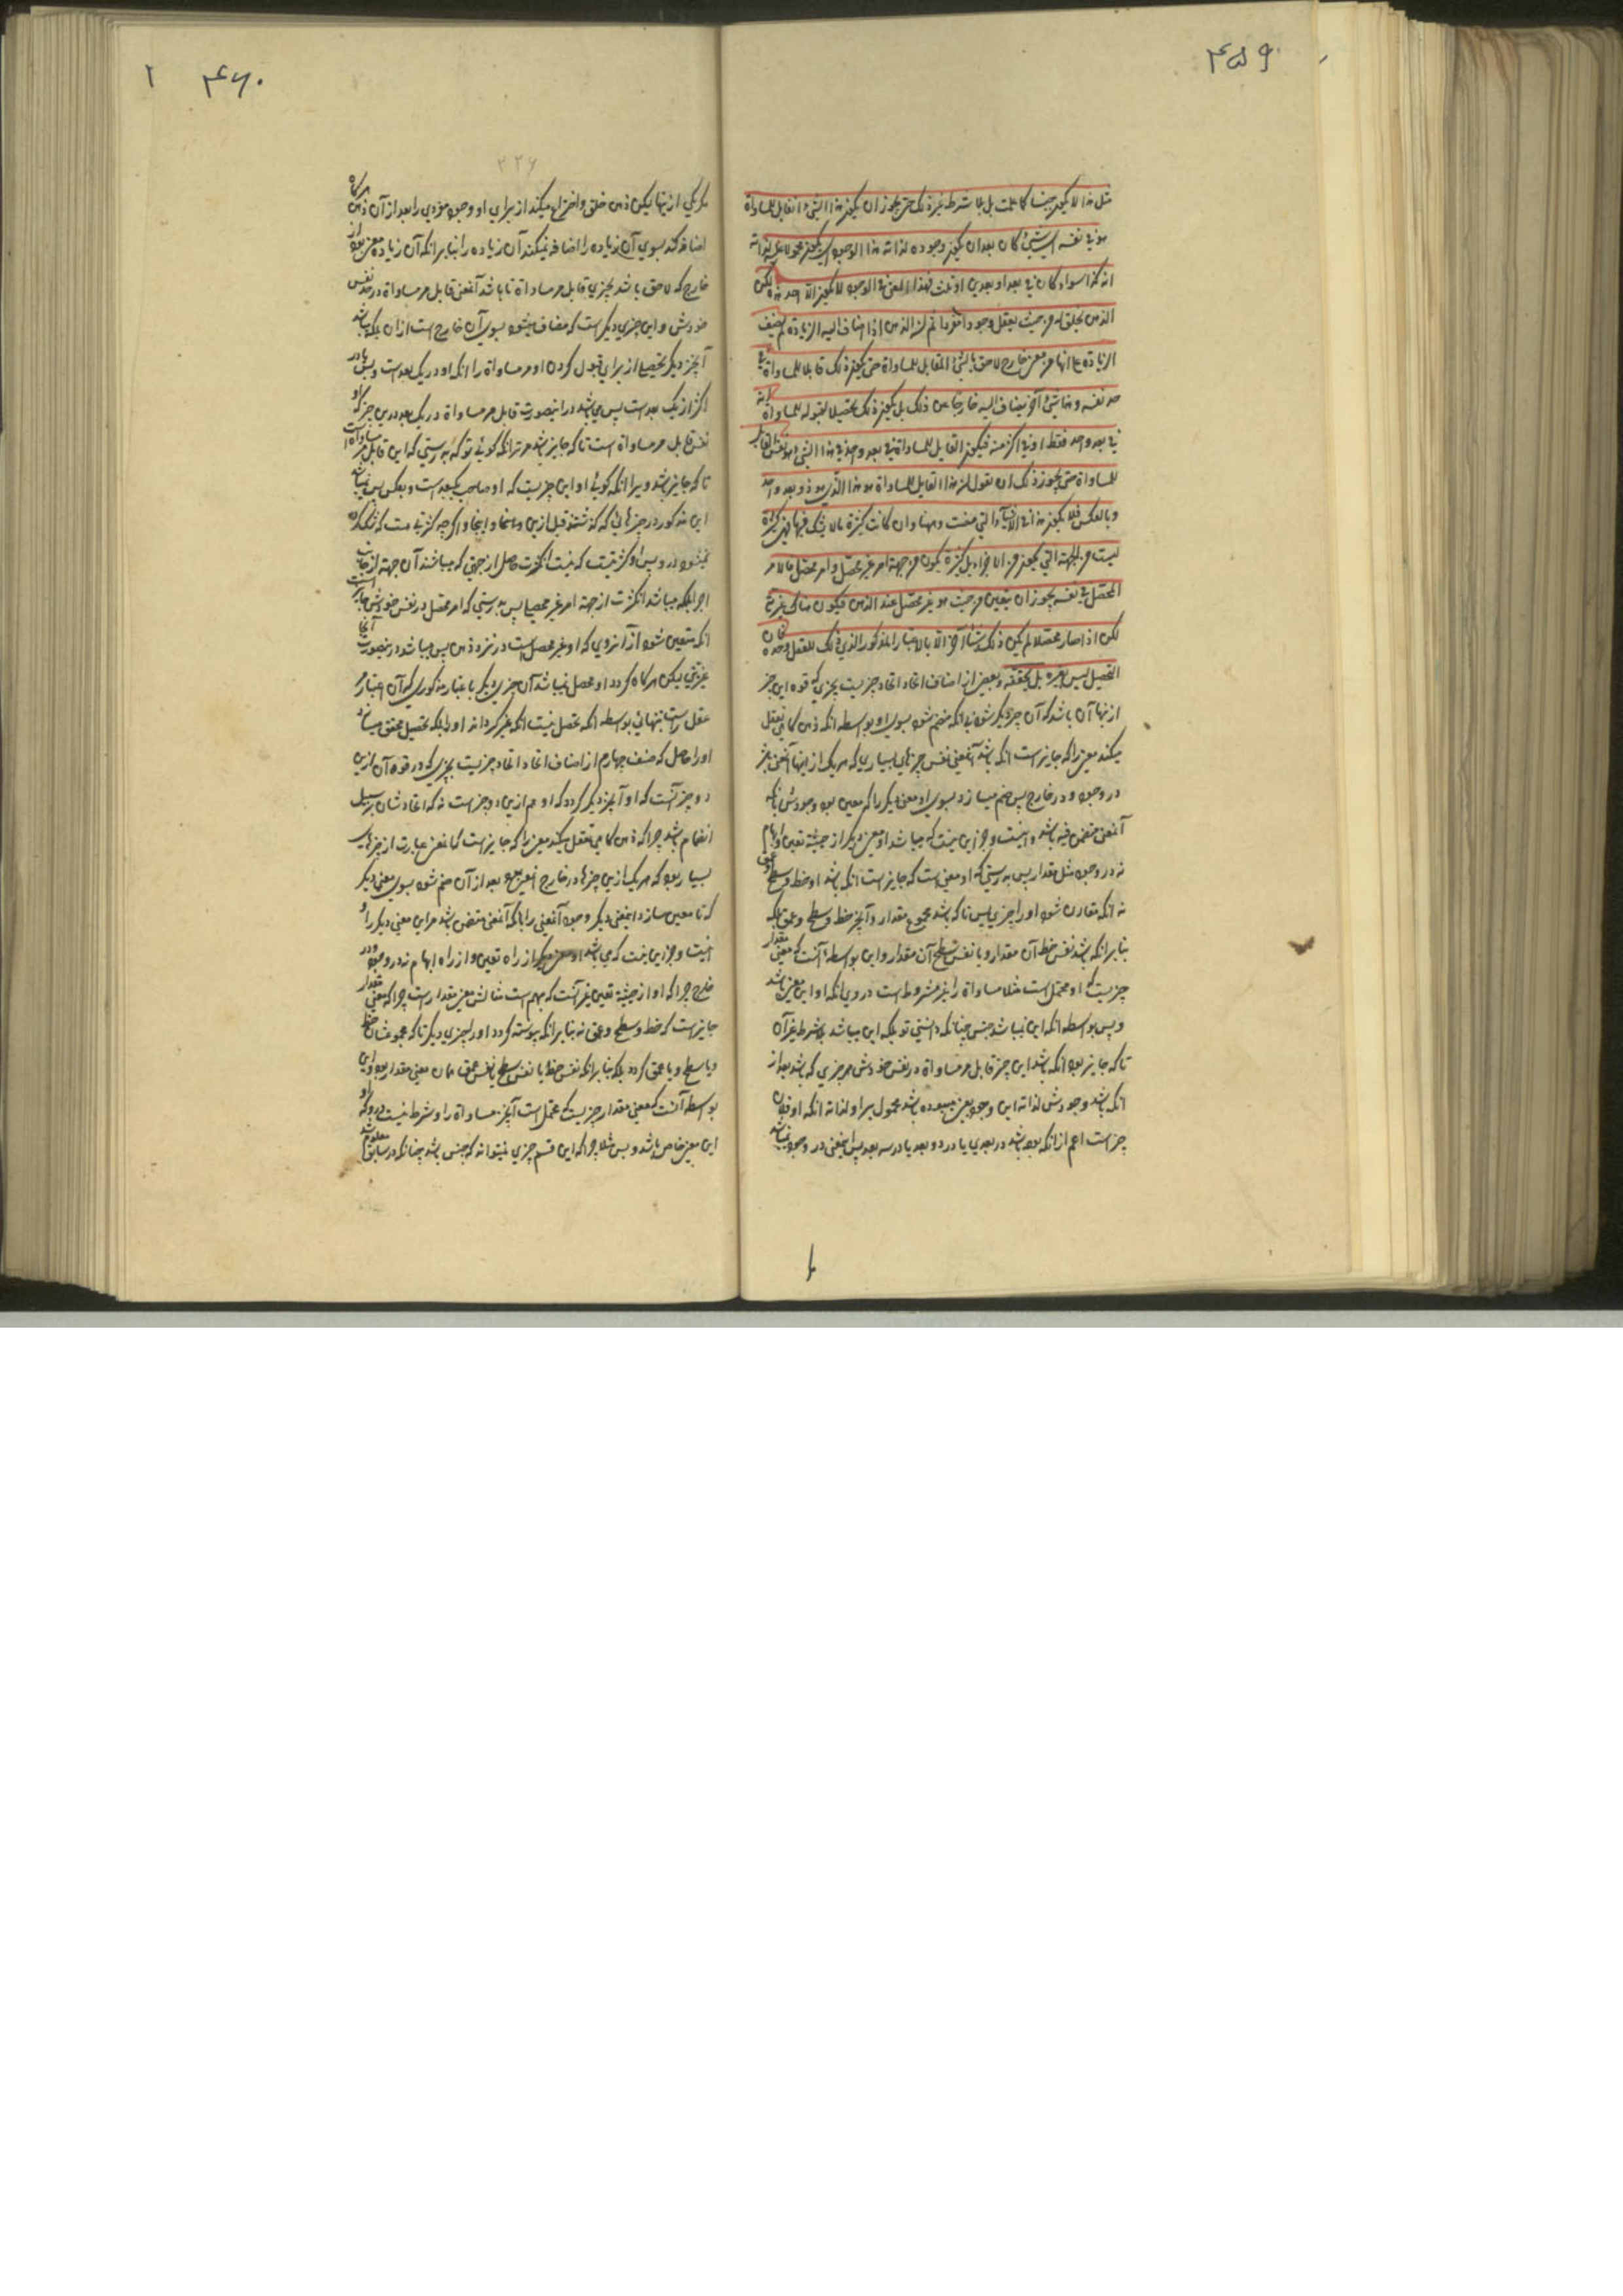 ۴۵۹
مثل هذا لا یکون جنسا کما علمت بل بلا شرط غیر ذلک حتی یجوز ان یکون هذا الشئ القابل للمساواة
هو فی نفسه ای شئ کان بعد ان یکون وجوده لذاته هذا الوجود ای یکون محمولا علیه لذاته
انه کذا سواء کان فی بعد او بعدین او ثلث فهذا المعنی فی الوجود لا یکون الا احد هذه لکن
الذهن یخلق له من حیث یعقل وجودا مفردا ثم ان الذهن اذا اضاف الیه الزیادة لم یضف
الزیادة علی انها معنی من خارج لاحق بالشئ القابل للمساواة حتی یکون ذلک قابلا للمساواة فی
حد نفسه و هذا شئ آخر یضاف الیه خارجا عن ذلک بل یکون ذلک تحصیلا لقبوله للمساواة انه
فی بعد واحد فقط او فی اکثر منه فیکون القابل للمساواة فی بعد واحد فی هذا الشئ هو نفس القابل
للمساواة حتی یجوز ذلک ان تقول ان هذا القابل للمساواة هو هذا الذی هو ذو بعد واحد
و بالعکس فلا یکون هذا فی الاشیاء التی مضت و ههنا و ان کانت کثرة ما لا شک فیها فهی کثرة
لیست من الجهة التی یکون من الاجزاء بل کثرة یکون من جهة امر غیر محصل و امر محصل فالامر
المحصل فی نفسه یجوز ان یتعین من حیث هو غیر محصل عند الذهن فیکون هناک غیریة
لکن اذا صار محصلا لم یکن ذلک شیئا آخر الا بالاعتبار المذکور الذی ذلک للعقل وحده فان
التحصیل لیس یغیره بل یحققه و بعضی از اصناف اتحاد اتحاد چیزیست بچیزی که قوه این چیز
از نها آن باشد که آن چیز دیگر شود نه انکه منضم شود بسوی او بواسطه انکه ذهن کاهی تعقل
میکند معنی را که جایز است انکه باشد آنمعنی نفس چیزهای بسیاری که هر یک از اینها آنمعنی باشد
در وجود و در خارج پس ضم میسازد بسوی او معنی دیگر را که معین بود وجودش بانکه
آنمعنی متضمن فیه باشد و نیست و جز این نیست که میباشد او معنی دیگر از حیثیة تعین و ابهام
نه در وجود مثل مقدار پس بدرستی که او معنی است که جایز است انکه باشد او خط و سطح و عمق
نه انکه مقارن شود او را چیزی پس تا که باشد مجموع مقدار و آنچیز خط و سطح و عمق بلکه
بنابر انکه باشد نفس خط آن مقدار و یا نفس سطح آن مقدار و این بواسطه آنست که معنی مقدار
چیزیست که او محتمل است مثلا مساواة را بغیر مشروط است در وی انکه او این معنی باشد
و پس بواسطه انکه این نمیباشد جنس چنانکه دانستی تو بلکه این میباشد بلا شرط غیر آن
تا که جایز بود انکه باشد این چیز قابل مر مساواة در نفس خودش هر چیزی که باشد بعد از
انکه باشد وجودش لذاته این وجود یعنی میبوده باشد محمول بر او لذاته انکه او فلان
چیز است اعم از انکه بوده باشد در بعدی یا در دو بعد یا در سه بعد پس اینمعنی در وجود نمیباشد
۴۶۰
۲۲۶
مگر یکی از اینها لیکن ذهن خلق و اختراع میکند از برای او وجود مفردی را بعد از آن ذهن هرگاه
اضافه کند بسوی آن زیاده را اضافه نمیکند آن زیاده را بنابر انکه آن زیاده معنی بود از
خارج که لاحق باشد بچیزی قابل مر مساواة تا باشد آنمعنی قابل مر مساواة در حد نفس
خودش و این چیزی دیگر است که مضاف میشود بسوی آن خارج است از ان بلکه میباشد
آنچیز دیگر تحصیلی از برای قبول کردن او مر مساواة را انکه او در یک بعد است و بس یا در
اکثر از یک بعد است پس میباشد در اینصورت قابل مر مساواة در یک بعد در این چیز که او
نفس قابل مر مساواة است تا که جایز باشد مر ترا انکه گوئی تو که بدرستی که این قابل مساواة است
تا که جایز باشد ویرا انکه گوئی او این چیزیست که او صاحب یکبعد است و بعکس پس نمیباشد
این مذکور در چیزهائی که گذشتند قبل ازین و اینجا و اگر چه کثرتی هست که شک کرده
نمیشود در وی پس او کثرتیست که نیست ان کثرت حاصل از جهتی که میباشند آن جهة از جانب
اجزا بلکه میباشد انکثرت از جهة امر غیر محصل پس بدرستی که امر محصل در نفس خودش جایز است
انکه متعین شود از آنروی که او غیر محصل است در نزد ذهن پس میباشد در ینصورت آنجا
غیریتی لیکن هرگاه گردد او محصل نمیباشد آن چیزی دیگر باعتبار مذکوری که آن اعتبار مر
عقل راست بتنهائی بواسطه انکه تحصل نیست انکه غیر گرداند او را بلکه تحصیل محقق میسازد
او را حاصل که صنف چهارم از اصناف اتحاد اتحاد چیزیست بچیزی که در قوه آن ازین
دو چیز آنست که او آنچیز دیگر گردد که او هم ازین دو چیز است نه که اتحادشان بر سبیل
انضمام باشد چرا که ذهن کاهی تعقل میکند معنی را که جایز است کما نفس عبارت از چیزهای
بسیار بود که هر یک ازین چیزها در خارج آنمعنی بود بعد از آن ضم شود بسوی معنی دیگر
که تا معین سازد اینمعنی دیگر وجود آنمعنی را بانکه آنمعنی متضمن باشد مر این معنی دیگر را و
نیست و جز این نیست که می باشد او معنی دیگر از راه تعین و از راه ابهام نه در وجود و در
خارج چرا که او از حیثیة تعین غیر آنست که مبهم است مثالش معنی مقدار است چرا که معنی مقدار
جایز است که خط و سطح و عمق نه بنابر انکه پیوسته گردد او را بچیزی دیگر تا که مجموعشان خط
و یا سطح و یا عمق گردد بلکه بنابر انکه نفس خط یا نفس سطح یا نفس عمق همان معنی مقدار بود و این
بواسطه آنست که معنی مقدار چیزیست که محتمل است آنچیز مساواة را و شرط نیست در وی که او
این معنی خاص باشد و بس مثلا چرا که این قسم چیزی نمیتواند که جنس باشد چنانکه در سابق معلوم شد